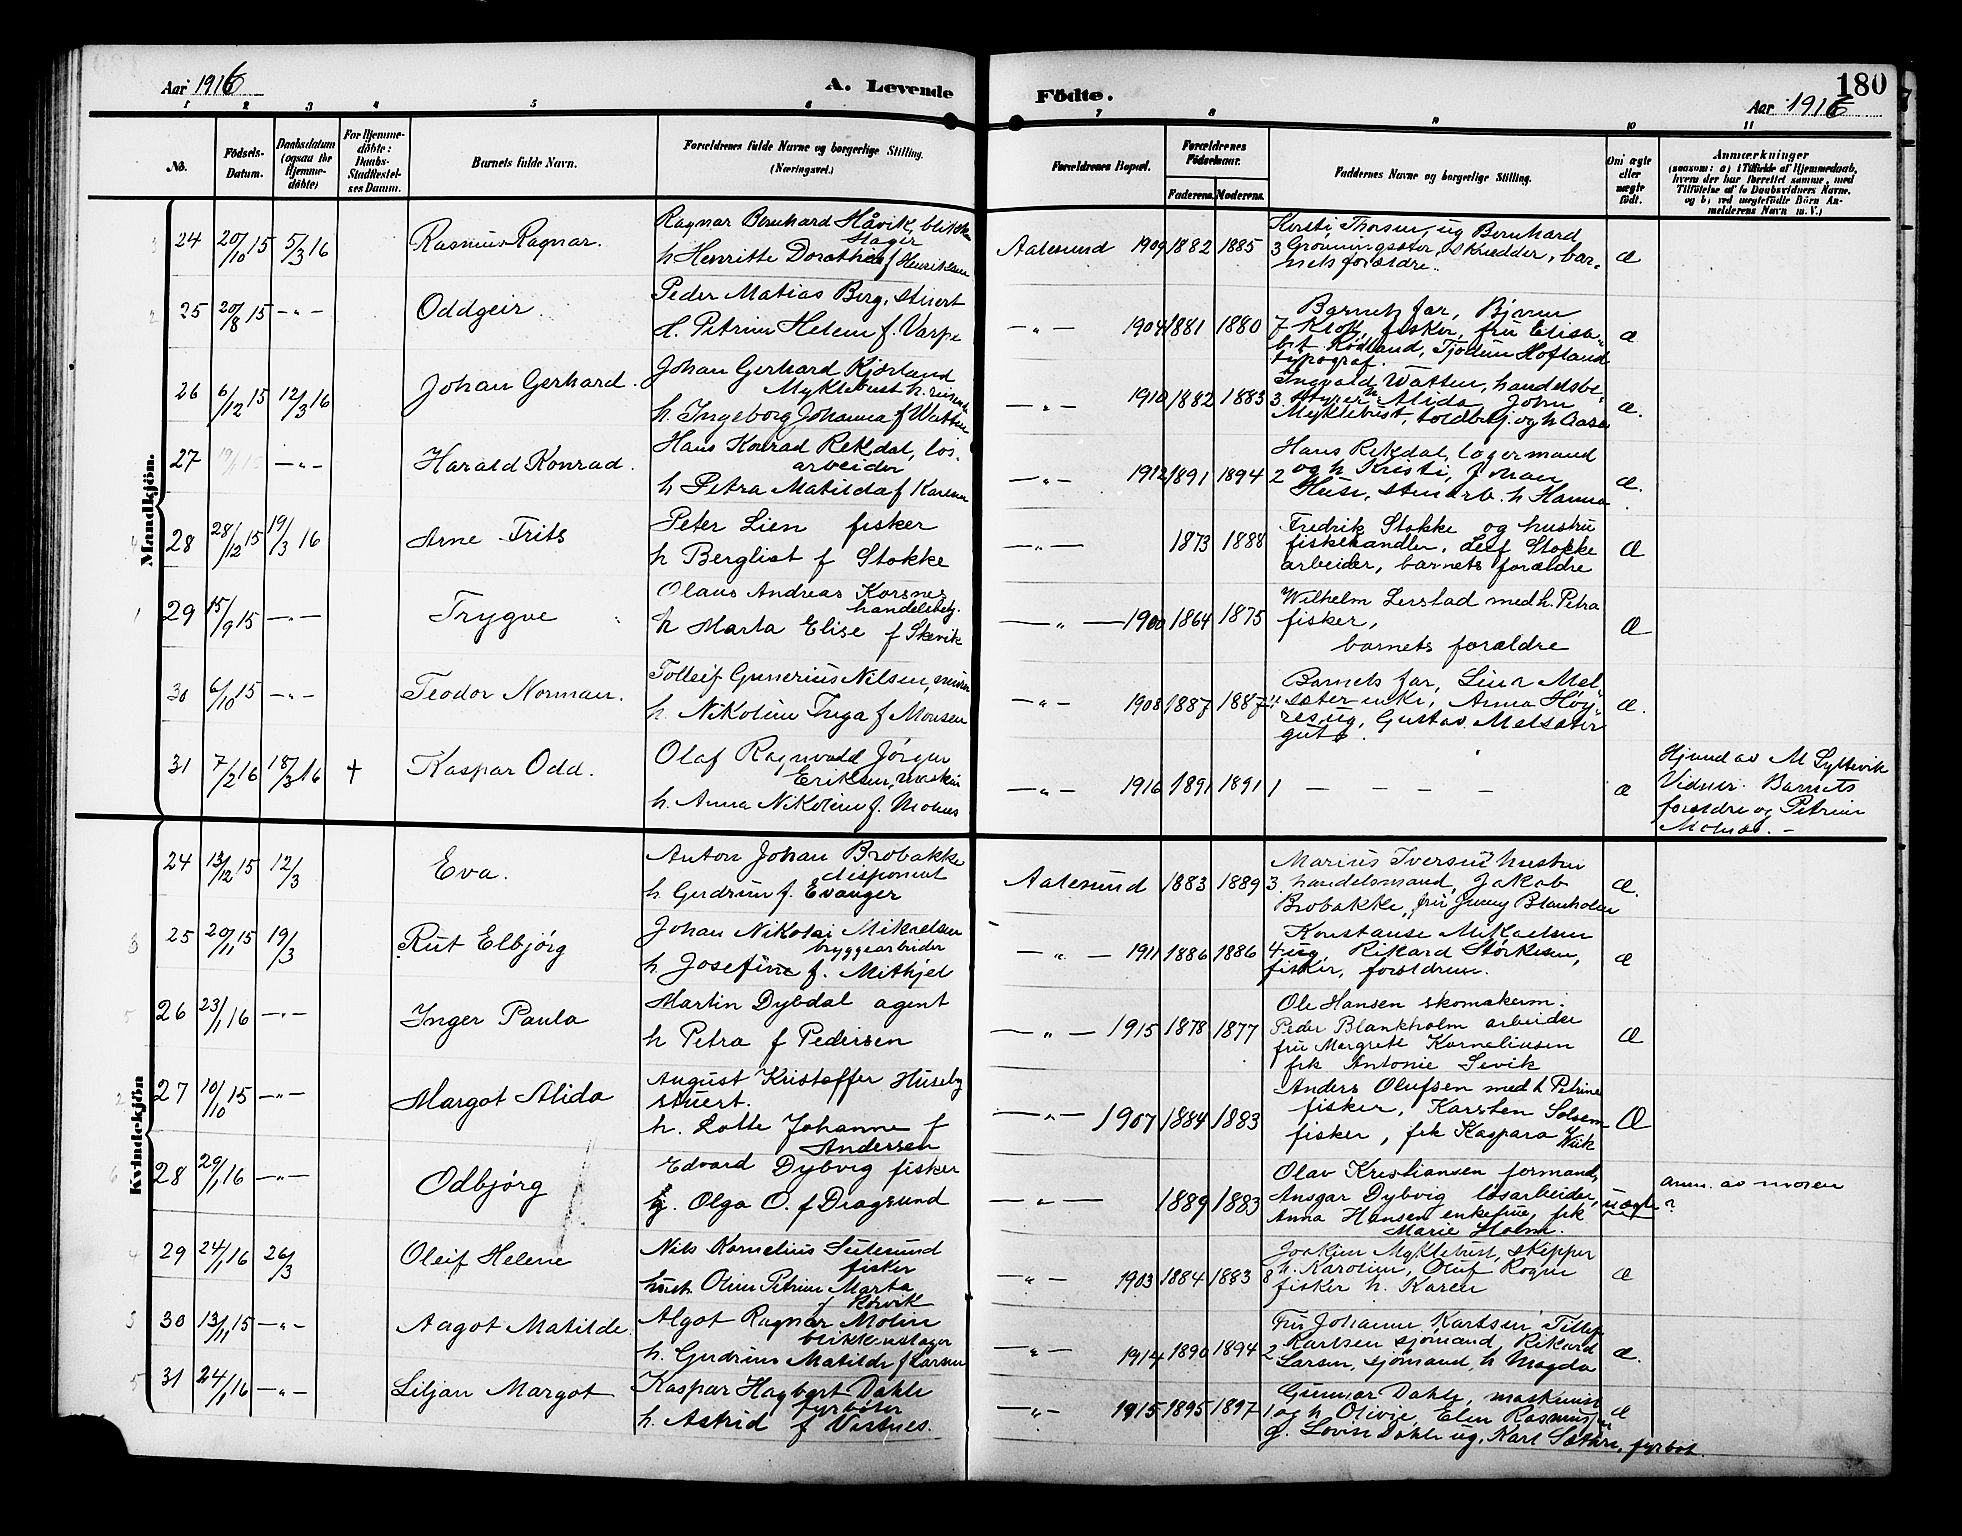 Aar 1916
A. Levende
Fødte.
180
Aar 1916
1 2 3 4 5 6 7 8 9 10 11
No.
Fødsels-
Datum.
Daabsdatum
(ogsaa for
Hjemme-
døbte)
For Hjemme-
døbte:
Daabs-
Stadfæstel-
ses Datum.
Barnets fulde Navn.
Forældrenes fulde Navne og borgerlige Stilling.
(Næringsvei.)
Forældrenes Bopæl.
Forældrenes
Fødselsaar.
Faderens. Moderens.
Faddernes Navne og borgerlige Stilling.
Om ægte
eller
uægte
født.
Anmærkninger
(saasom: a) i Tilfælde af Hjemmedaab,
hvem der har forrettet samme, med
Tilføielse af to Daabsvidners Navne.
og b) ved uægtefødte Børn An-
melderens Navn m. V.)
Mandkjøn.
24 20/10 15 5/3 16 Rasmus Ragnar.
Ragnar Bernhard Håvik, blikken
slager
h Henritte Dorothea f Henriksen
Aalesund 1909 1882 1885
Kirsti Thorsen, ug Bernhard
3 Grönningsæter, skrædder, bar-
nets forældre.
æ
25 20/8 15 -"- Oddgeir.
Peder Matias Berg, stuert
h. Petrine Helene f. Varpe
-"- 1904 1881 1880
Barnets far,
7 fisker, fru Elisa-
bet Rødland, Hofland
typograf.
æ
26 6/12 15 12/3 16 Johan Gerhard.
Johan Gerhard Kjörland
Myklebust h. reisende
h. Ingeborg Johanna f Watten
-"- 1910 1882 1883
Ingvald Watten, handelsbe-
3. styrer h Alida, John
Myklebust, toldbetj. og h Aasa
æ.
27 -"- Harald Konrad.
Hans Konrad Rekdal, løs-
arbeider
h Petra Matilda f Karlsen
-"- 1912 1891 1894
Hans Rekdal, lagermand
2 og h Kristi, Johan
Huse, stenarb. h Hanna
æ.
28 28/12 15 19/3 16 Arne Frits
Peter Lien fisker
h Bergliot f Stokke
-"- 1873 1888
Fredrik Stokke og hustru
fiskehandler, Leif Stokke
arbeider, barnets forældre
Æ
29 15/9 15 -"- Trygve
Olaus Andreas Korsnes
handelsbetj.
h Marta Elise f Skevik
-"- 1900 1864 1875
Wilhelm Lerstad med h. Petra
fisker,
barnets forældre
Æ
30 6/10 15 -"- Teodor Norman.
Tolleif Gunerius Nilsen, murer
h. Nikoline Inga f Monsen
-"- 1908 1887 1887
Barnets far, Lina Mel-
sæter enke, Anna Høy-
res ug, Gustav Melsæter
gut.
Æ.
31 7/2 16 18/3 16 + Kaspar Odd.
Olaf Ragnvald Jørgen
Eriksen, maskin
h. Anna Nikoline f. Molnes
-"- 1916 1891 1891 1 - - - - -
æ
Hjemd av M Syltevik
Vidner: Barnets
forældre og Petrine
Molnes. -
Kvindekjøn
24 13/12 15 12/3 Eva.
Anton Johan Brobakke
disponent
h. Gudrun f. Evanger
Aalesund 1883 1889
Marius Iversen hustru
3. handelsmand, Jakob
Brobakke, fru Jenny Blanholm
Æ.
25 20/11 15 19/3 Rut Elbjørg
Johan Nikolai Mikaelsen
bryggearbeider
h. Josefine f. Mithjel
-"- 1911 1886 1886
Konstanse Mikaelsen
4 ug, Rikard Størkesen,
fisker, forældrene.
æ
26 23/1 16 -"- Inger Paula
Martin Dybdal agent
h Petra f Pedersen
-"- 1915 1878 1877
Ole Hansen skomakerm.
Peder Blankholm arbeider
fru Margrett Korneliusen
frk Antonie Sevik
Æ
27 10/10 15 -"- Margot Alida
August Kristoffer Huseby
stuert.
h. Lotte Johanne f
Andersen
-"- 1907 1884 1883
Anders Olufsen med h Petrine
fisker, Karsten Solsem
fisker, frk Kaspara Wiik
Æ
28 29/1 16 -"- Odbjørg
Edvard Dybvig fisker
g. Olga O. f Dragsund
-"- 1889 1883
Olav Kristiansen formand,
Ansgar Dybvig løsarbeider,
Anna Hansen enkefrue, frk
Marie Holm.
uægte
anm. av moren
?
29 24/1 16 26/3 Oleif Helene
Nils Kornelius Sulesund
fisker
hust. Oline Petrine Marta
f Rørvik
-"- 1903 1884 1883
Joakim Myklebust, skipper
8 h. Karoline, Oluf Rogne
fisker h. Karen
Æ
30 13/11 15 -"- Aagot Matilde.
Algot Ragnar Molin
blikkenslager
h. Gudrun Matilde f Larsen
-"- 1914 1890 1894
Fru Johanne Karlsen
2. Karlsen sjømand Rikard
Larsen, sjømand, h Magda
æ.
31 24/1 16 -"- Liljan Margot
Kaspar Hagbart Dahle
fyrbøter
h. Astrid f Vestnes.
-"- 1915 1895 1897
Gunnar Dahle, maskinist
1 og h Olivie, Elen Rasmussen
g. Lovise Dahle ug, Karl Sætre, fyrbøt.
æ